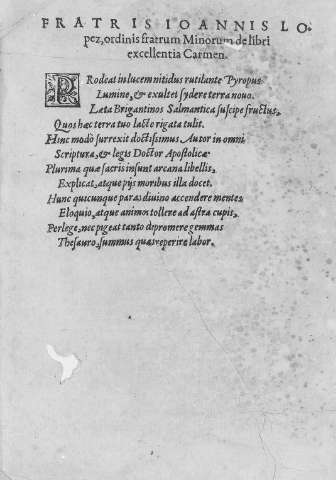 FRATRIS IOANNIS LO-
pez, ordinis fratrum Minorum de libri
excellentia Carmen.
PRodeat in lucem nitidus rutilante Pyropus
Lumine, & exultet sydere terra nouo.
Læta Brigantinos Salmantica suscipe fructus,
Quos hæc terra tuo lacte rigata tulit.
Hinc modò surrexit doctissimus Autor in omni
Scriptura, & legis Doctor Apostolicæ
Plurima quæ sacris insunt arcana libellis,
Explicat, atque pijs moribus illa docet.
Hunc quicunque paras diuino accendere mentes
Eloquio, atque animos tollere ad astra cupis,
Perlege, nec pigeat tanto depromere gemmas
Thesauro, summus quas reperire labor.